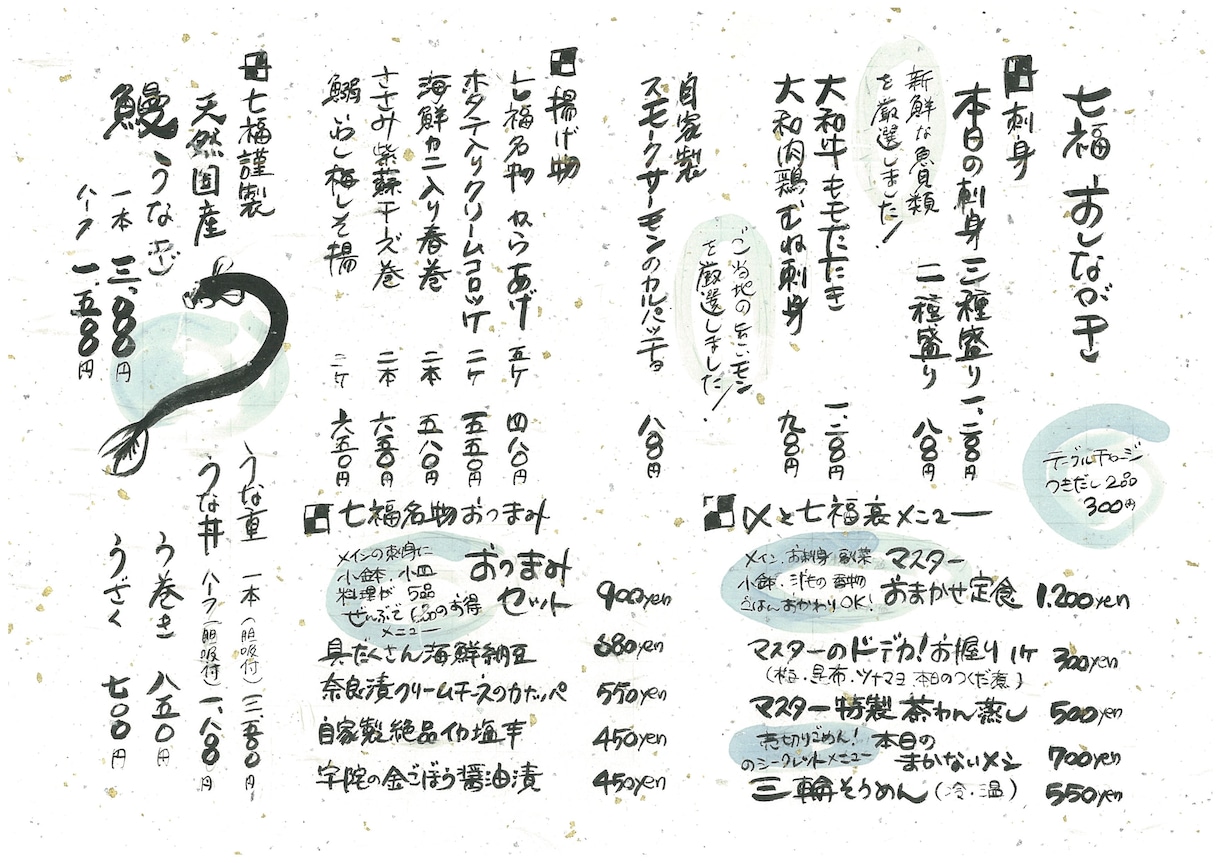 七福 おしながき
テーブルチャージ
つきだし2品
300円
刺身
本日の刺身 三種盛り 一、二〇〇円
二種盛り 八〇〇円
新鮮な魚貝類
を厳選しました!
大和牛もモたたき 一、二〇〇円
大和肉鶏むね刺身 九〇〇円
ご当地の旨いモン
を厳選しました!
自家製
スモークサーモンのカルパッチョ 八〇〇円
揚げ物
七福名物 からあげ 五ケ 四八〇円
ホタテ入りクリームコロッケ 二ケ 五五〇円
海鮮カニ入り春巻 二本 五八〇円
ささみ紫蘇チーズ巻 二本 六五〇円
鰯いわし梅しそ揚 二ケ 六五〇円
七福謹製
天然国産
鰻うなぎ
一本 三、八〇〇円
ハーフ 一、五〇〇円
うな重 一本(肝吸付) 三、五〇〇円
うな丼 ハーフ(肝吸付) 一、八〇〇円
う巻き 八五〇円
うざく 七〇〇円
七福名物おつまみ
メインの刺身に
小鉢・小皿
料理が5品
ぜんぶで6品のお得
メニュー
おつまみ
セット 900yen
具だくさん海鮮納豆 680yen
奈良漬クリームチーズのカナッペ 550yen
自家製絶品イカ塩辛 450yen
宇陀の金ごぼう醤油漬 450yen
〆と七福裏メニュー
メイン・お刺身・副菜
小鉢・汁もの・香物
ごはんおかわりOK!
マスター
おまかせ定食 1.200yen
マスターのドデカ!お握り 1ケ 300yen
(梅・昆布・ツナマヨ 本日のつくだ煮)
マスター特製 茶わん蒸し 500yen
売切りごめん!
のシークレットメニュー
本日の
まかないメシ 700yen
三輪そうめん(冷・温) 550yen